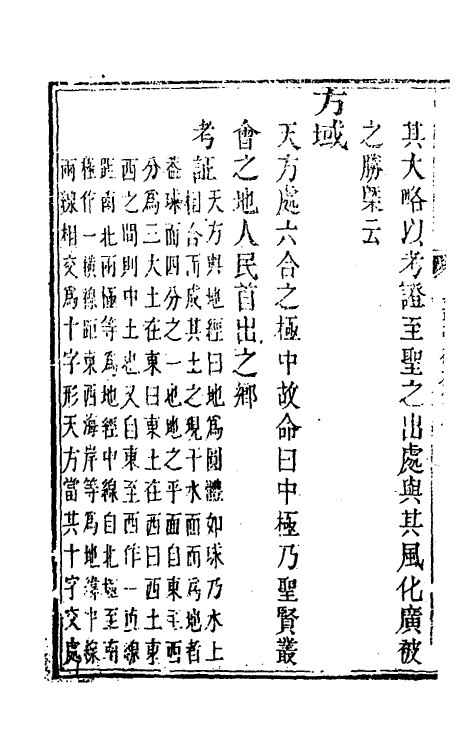 其大略以考證至聖之出處與其風化廣被
之勝槩云
方域
天方處六合之極中故命曰中極乃聖賢叢
會之地人民首出之鄉
考証天方輿地經曰地為圓體如球乃水土
相合而成其土之現于水面而為地者
葢球面四分之一也地之平面自東至西
分為三大土在東曰東土在西曰西土東
西之間則中土也又自東至西作一直線
距南北兩極等為地經中線自北極至南
極作一橫線距東西海岸等為地緯中線
兩線相交為十字形天方當其十字交處